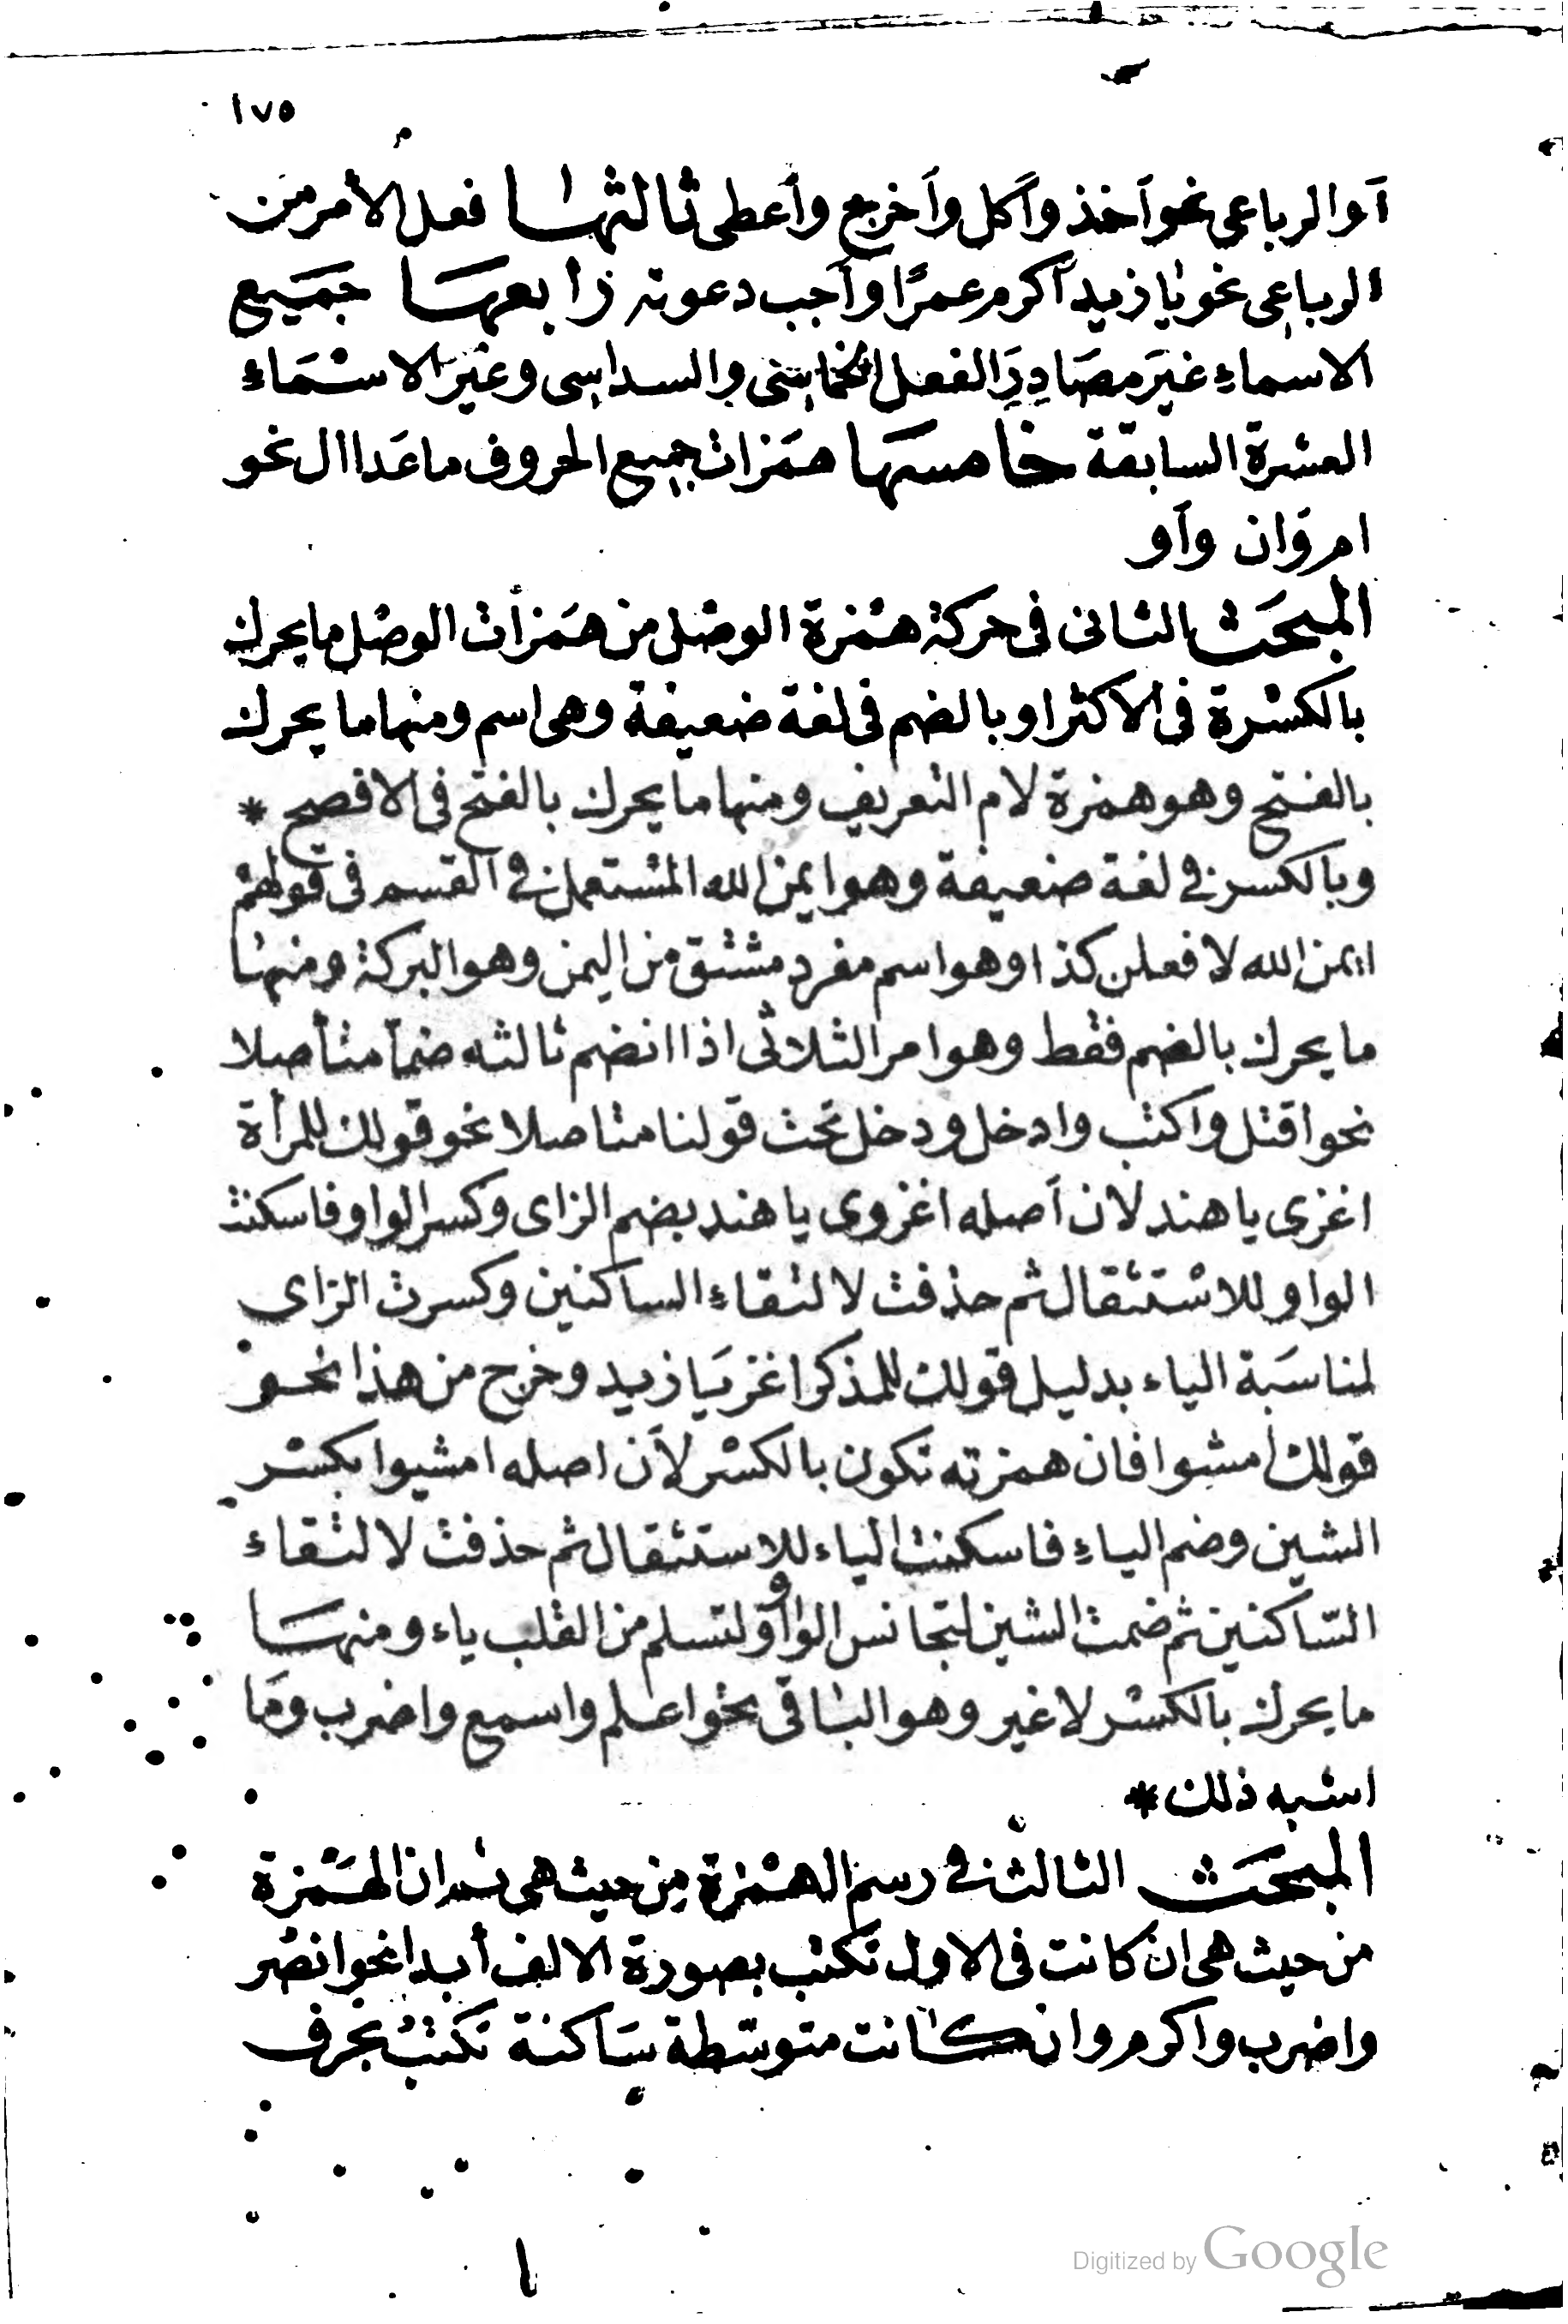 ١٧٥
أو الرباعي نحو أخذ وأكل وأخرج وأعطى ثالثها فعل الأمر من
الرباعى نحو يا زيد أكرم عمرًا وأجب دعوته رابعها جميع
الاسماءِ غيَر مصَادِرِ الفعل الخماسى والسداسى وغيَر الاسْمَاءِ
العشرة السابقة خامسها همَزات جميع الحروف ماعَدا ال نحو
ام وَان وأو
المبحَث الثانى فى حركة همْزة الوصْل من همَزأت الوصْل ما يحرك
بالكسْرة فى الاكثر او بالضم فى لغة ضعيفة وهى اسم ومنها ما يحرك
بالفتح وهو همزة لام التعريف ومنها ما يحرك بالفتح فى الافصح *
وبالكسر فى لغة ضعيفة وهو ايمن الله المسْتعمل فى القسم فى قولهمْ
ايمن الله لافعلن كذا وهو اسم مفرد مشتق من اليمن وهو البركة ومنها
ما يحرك بالضم فقط وهو امر الثلاثى اذا انضم ثالثه ضمًا متأصلا
نحو اقتل واكتب وادخل ودخل تحت قولنا متاصلا نحو قولك للمرأة
اغزى يا هند لان أصله اغزوى يا هند بضم الزاى وكسر الواو فاسكنت
الواو للاسْتثقال ثم حذفت لالتقاءِ الساكنين وكسرت الزاى
لمناسَبة الياء بدليل قولك للمذكر اغز يَا زيد وخرج من هذا نحو
قولك امشوا فان همزته تكون بالكسْر لأن اصله امشيوا بكسْر
الشين وضم الياءِ فاسكنت الياء للاستثقال ثم حذفت لالتقاء
السّاكنين ثم ضمت الشين لتجانس الواو ولتسلم من القلب ياء ومنها
ما يحرك بالكسْر لا غير وهو الباقى نحو اعلم واسمع واضرب ومَا
اشبه ذلك *
المبحَث الثالث فى رسم الهمْزة مِن حيث هى ان الهَمْزة
من حيث هى ان كانت فى الاول تكتب بصورة الالف أبدا نحو انصُر
واضرب واكرم وان كانت متوسّطة سَاكنة تكتبُ بحرف
Digitized by Google